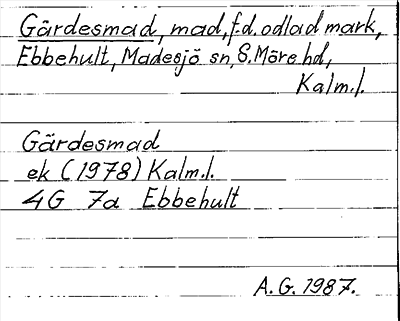 Gärdesmad, mad, f.d. odlad mark,
Ebbehult, Madesjö sn, S. Möre hd,
Kalm.l.
Gärdesmad
ek (1978) Kalm.l.
4G 7a Ebbehult
A.G. 1987.